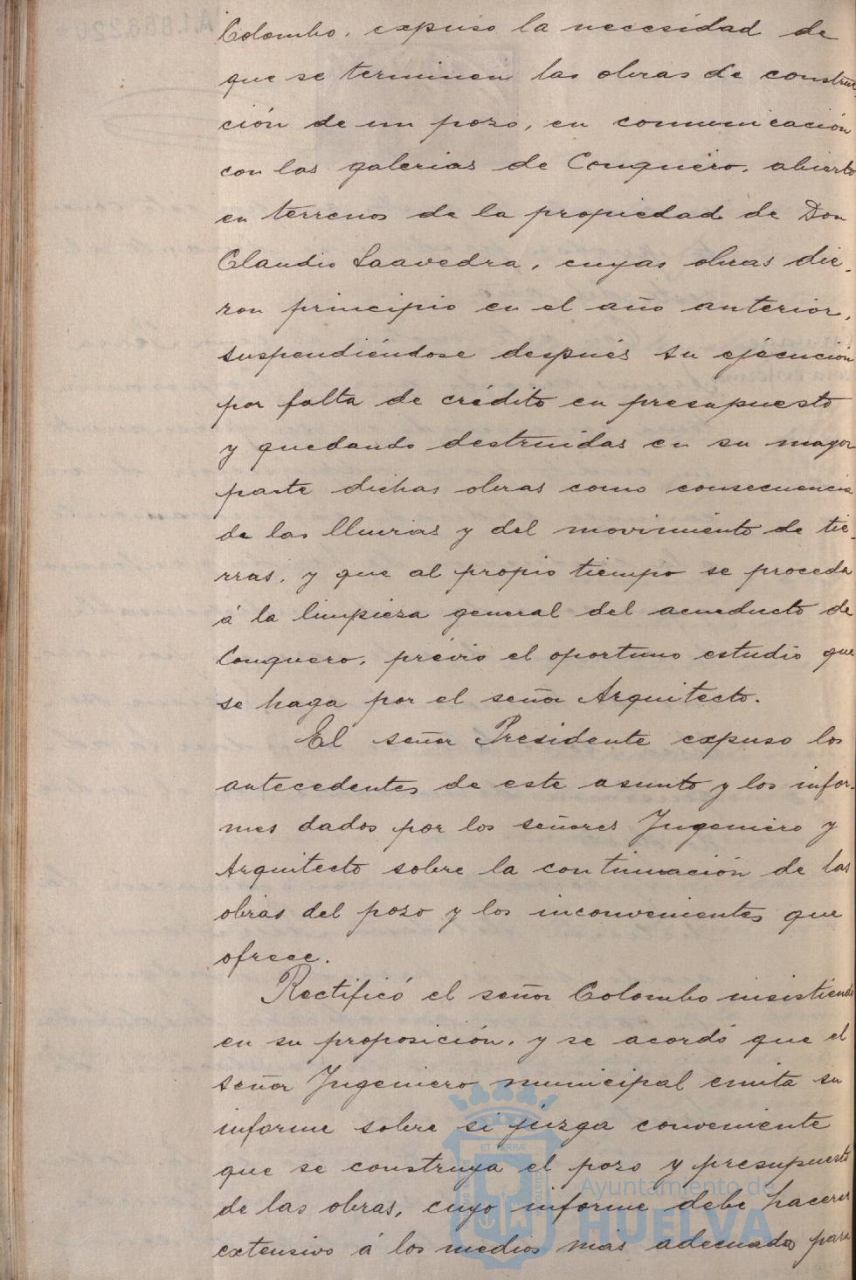 Colombo, expuso la necesidad de
que se terminen las obras de construc-
ción de un pozo, en comunicación
con las galerias de Conquero, abierto
en terrenos de la propiedad de Don
Claudio Saavedra, cuyas obras die-
ron principio en el año anterior,
suspendiéndose después su ejecución
por falta de crédito en presupuesto
y quedando destruidas en su mayor
parte dichas obras como consecuencia
de las lluvias y del movimiento de tie-
rras, y que al propio tiempo se proceda
á la limpieza general del acueducto de
Conquero, prévio el oportuno estudio que
se haga por el señor Arquitecto.
El señor Presidente expuso los
antecedentes de este asunto y los infor-
mes dados por los señores Ingeniero y
Arquitecto sobre la continuación de las
obras del pozo y los inconvenientes que
ofrece.
Rectificó el señor Colombo insistiendo
en su proposición, y se acordó que el
señor Ingeniero municipal emita su
informe sobre si juzga conveniente
que se construya el pozo y presupuesto
de las obras, cuyo informe debe hacerse
extensivo á los medios mas adecuados para
Ayuntamiento de
HUELVA